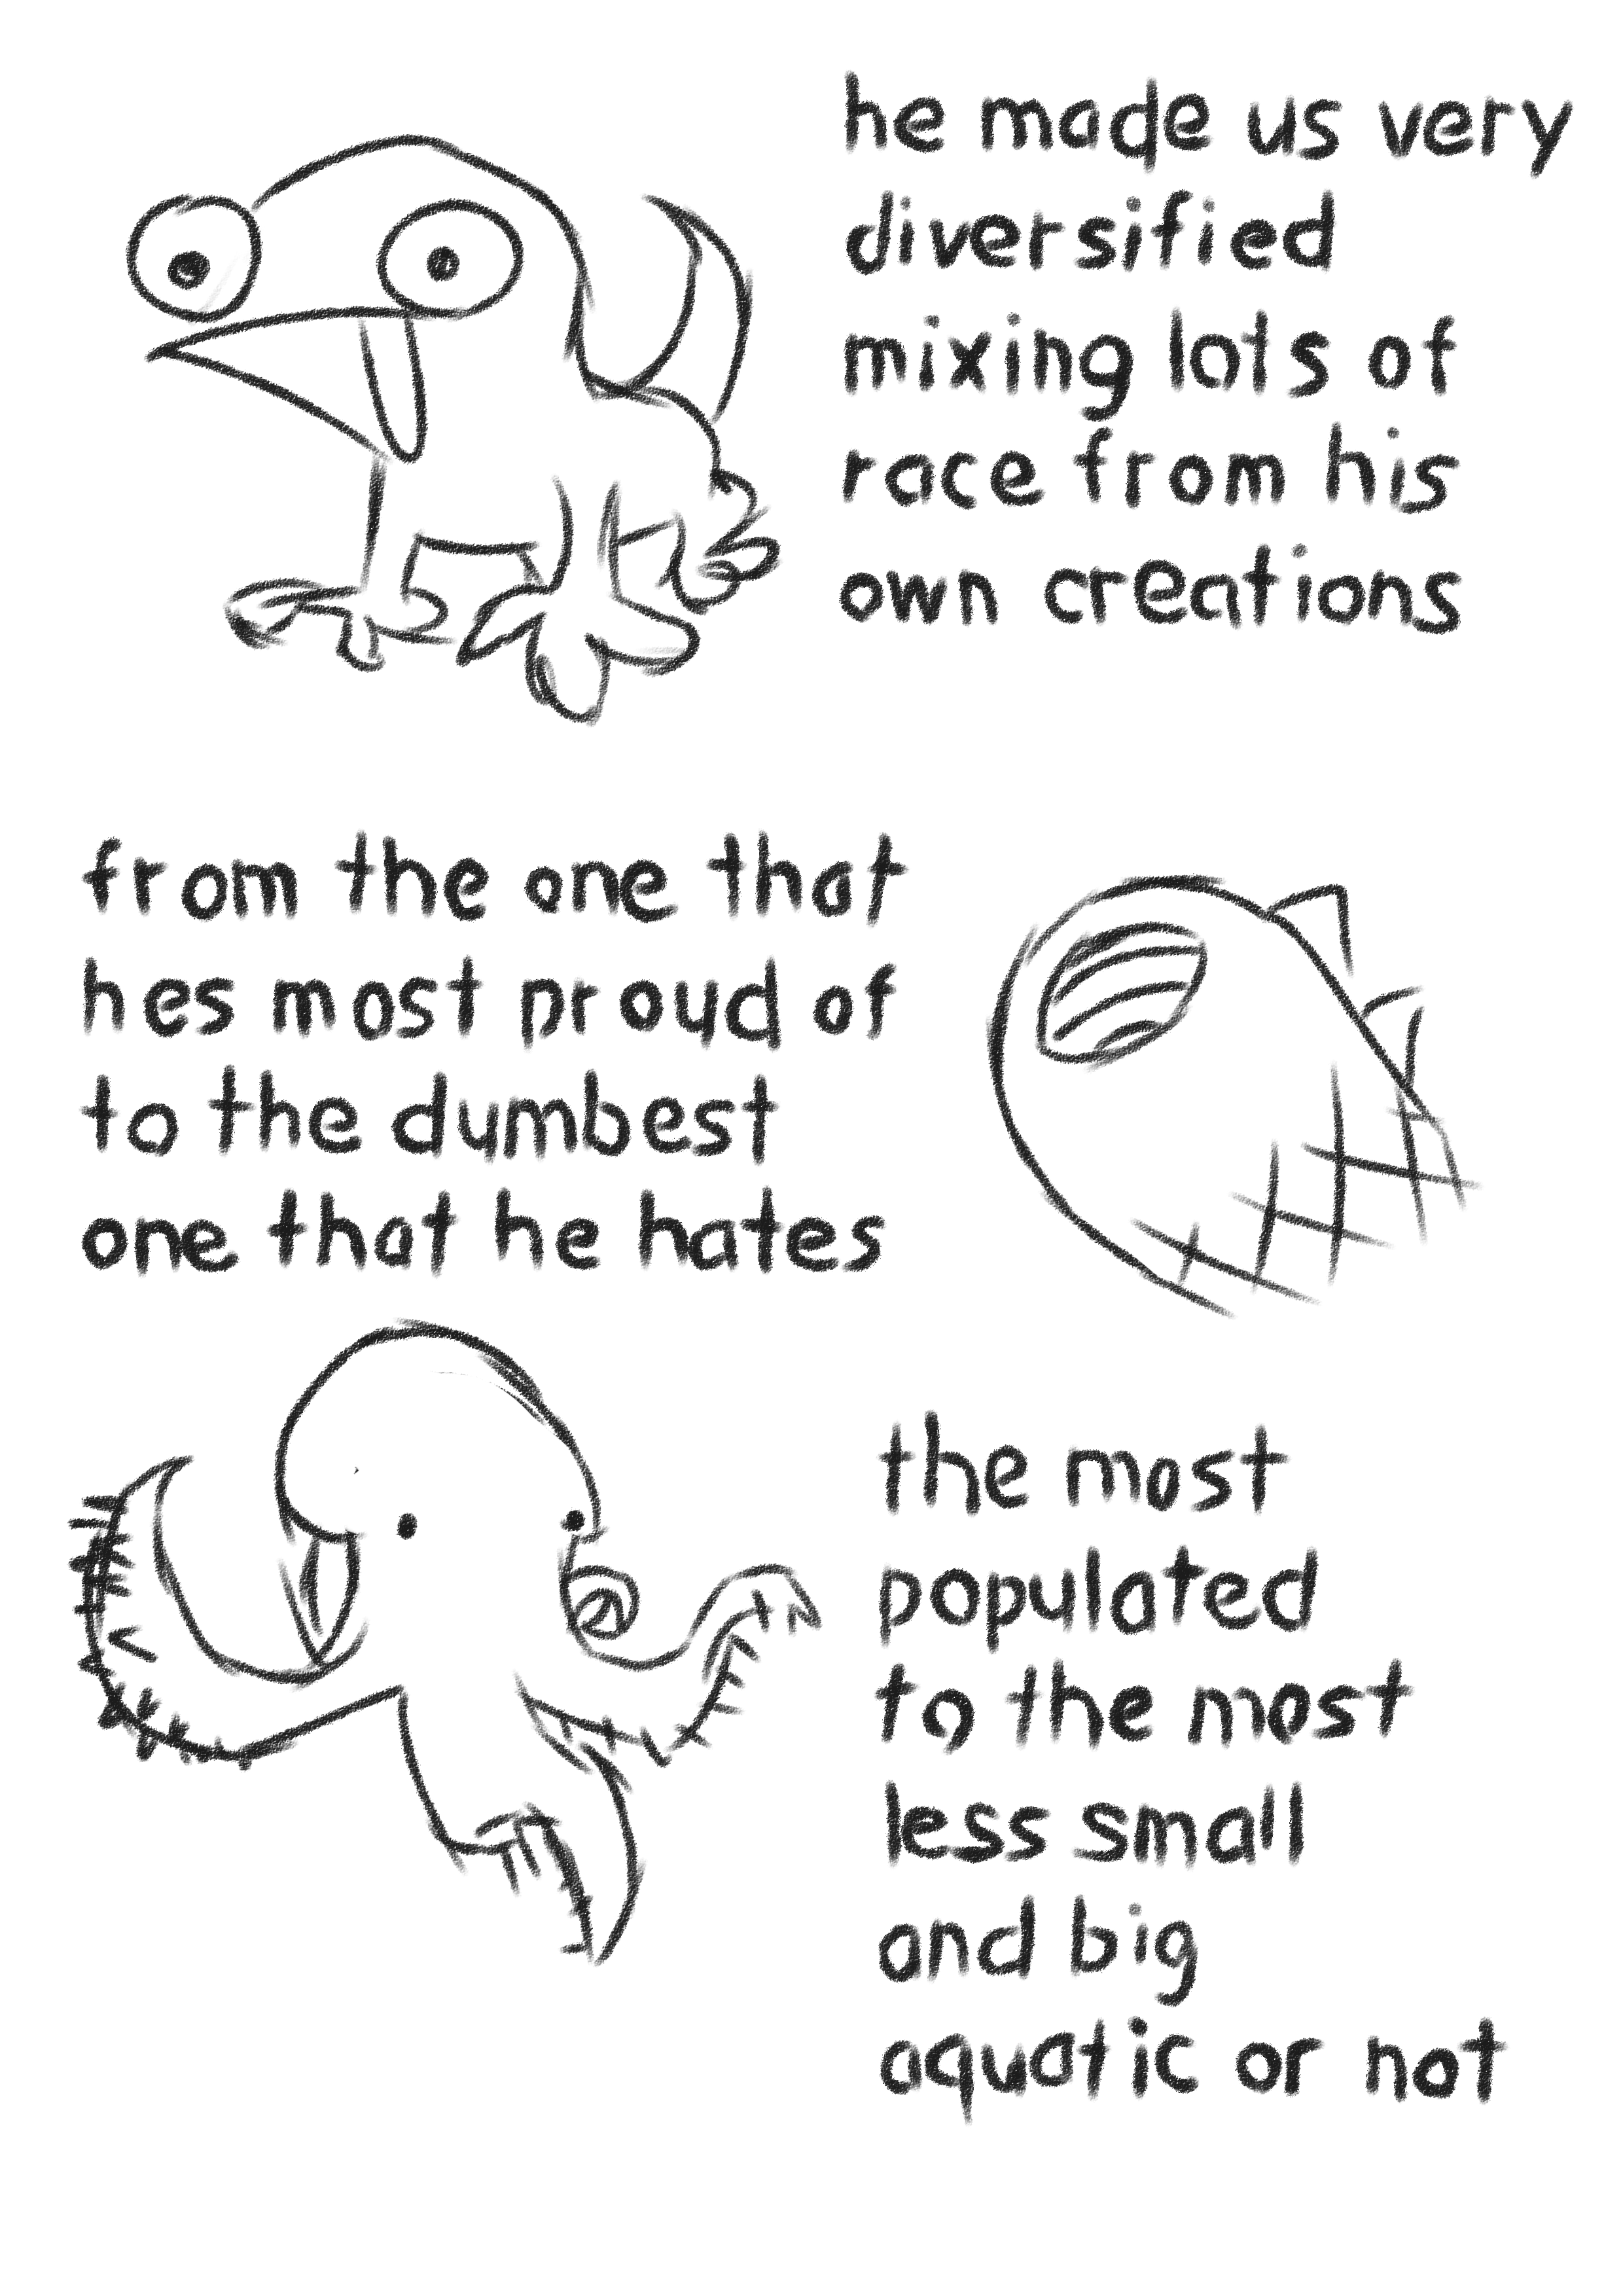 he made us very
diversified
mixing lots of
race from his
own creations
from the one that
hes most proud of
to the dumbest
one that he hates
the most
populated
to the most
less small
and big
aquatic or not